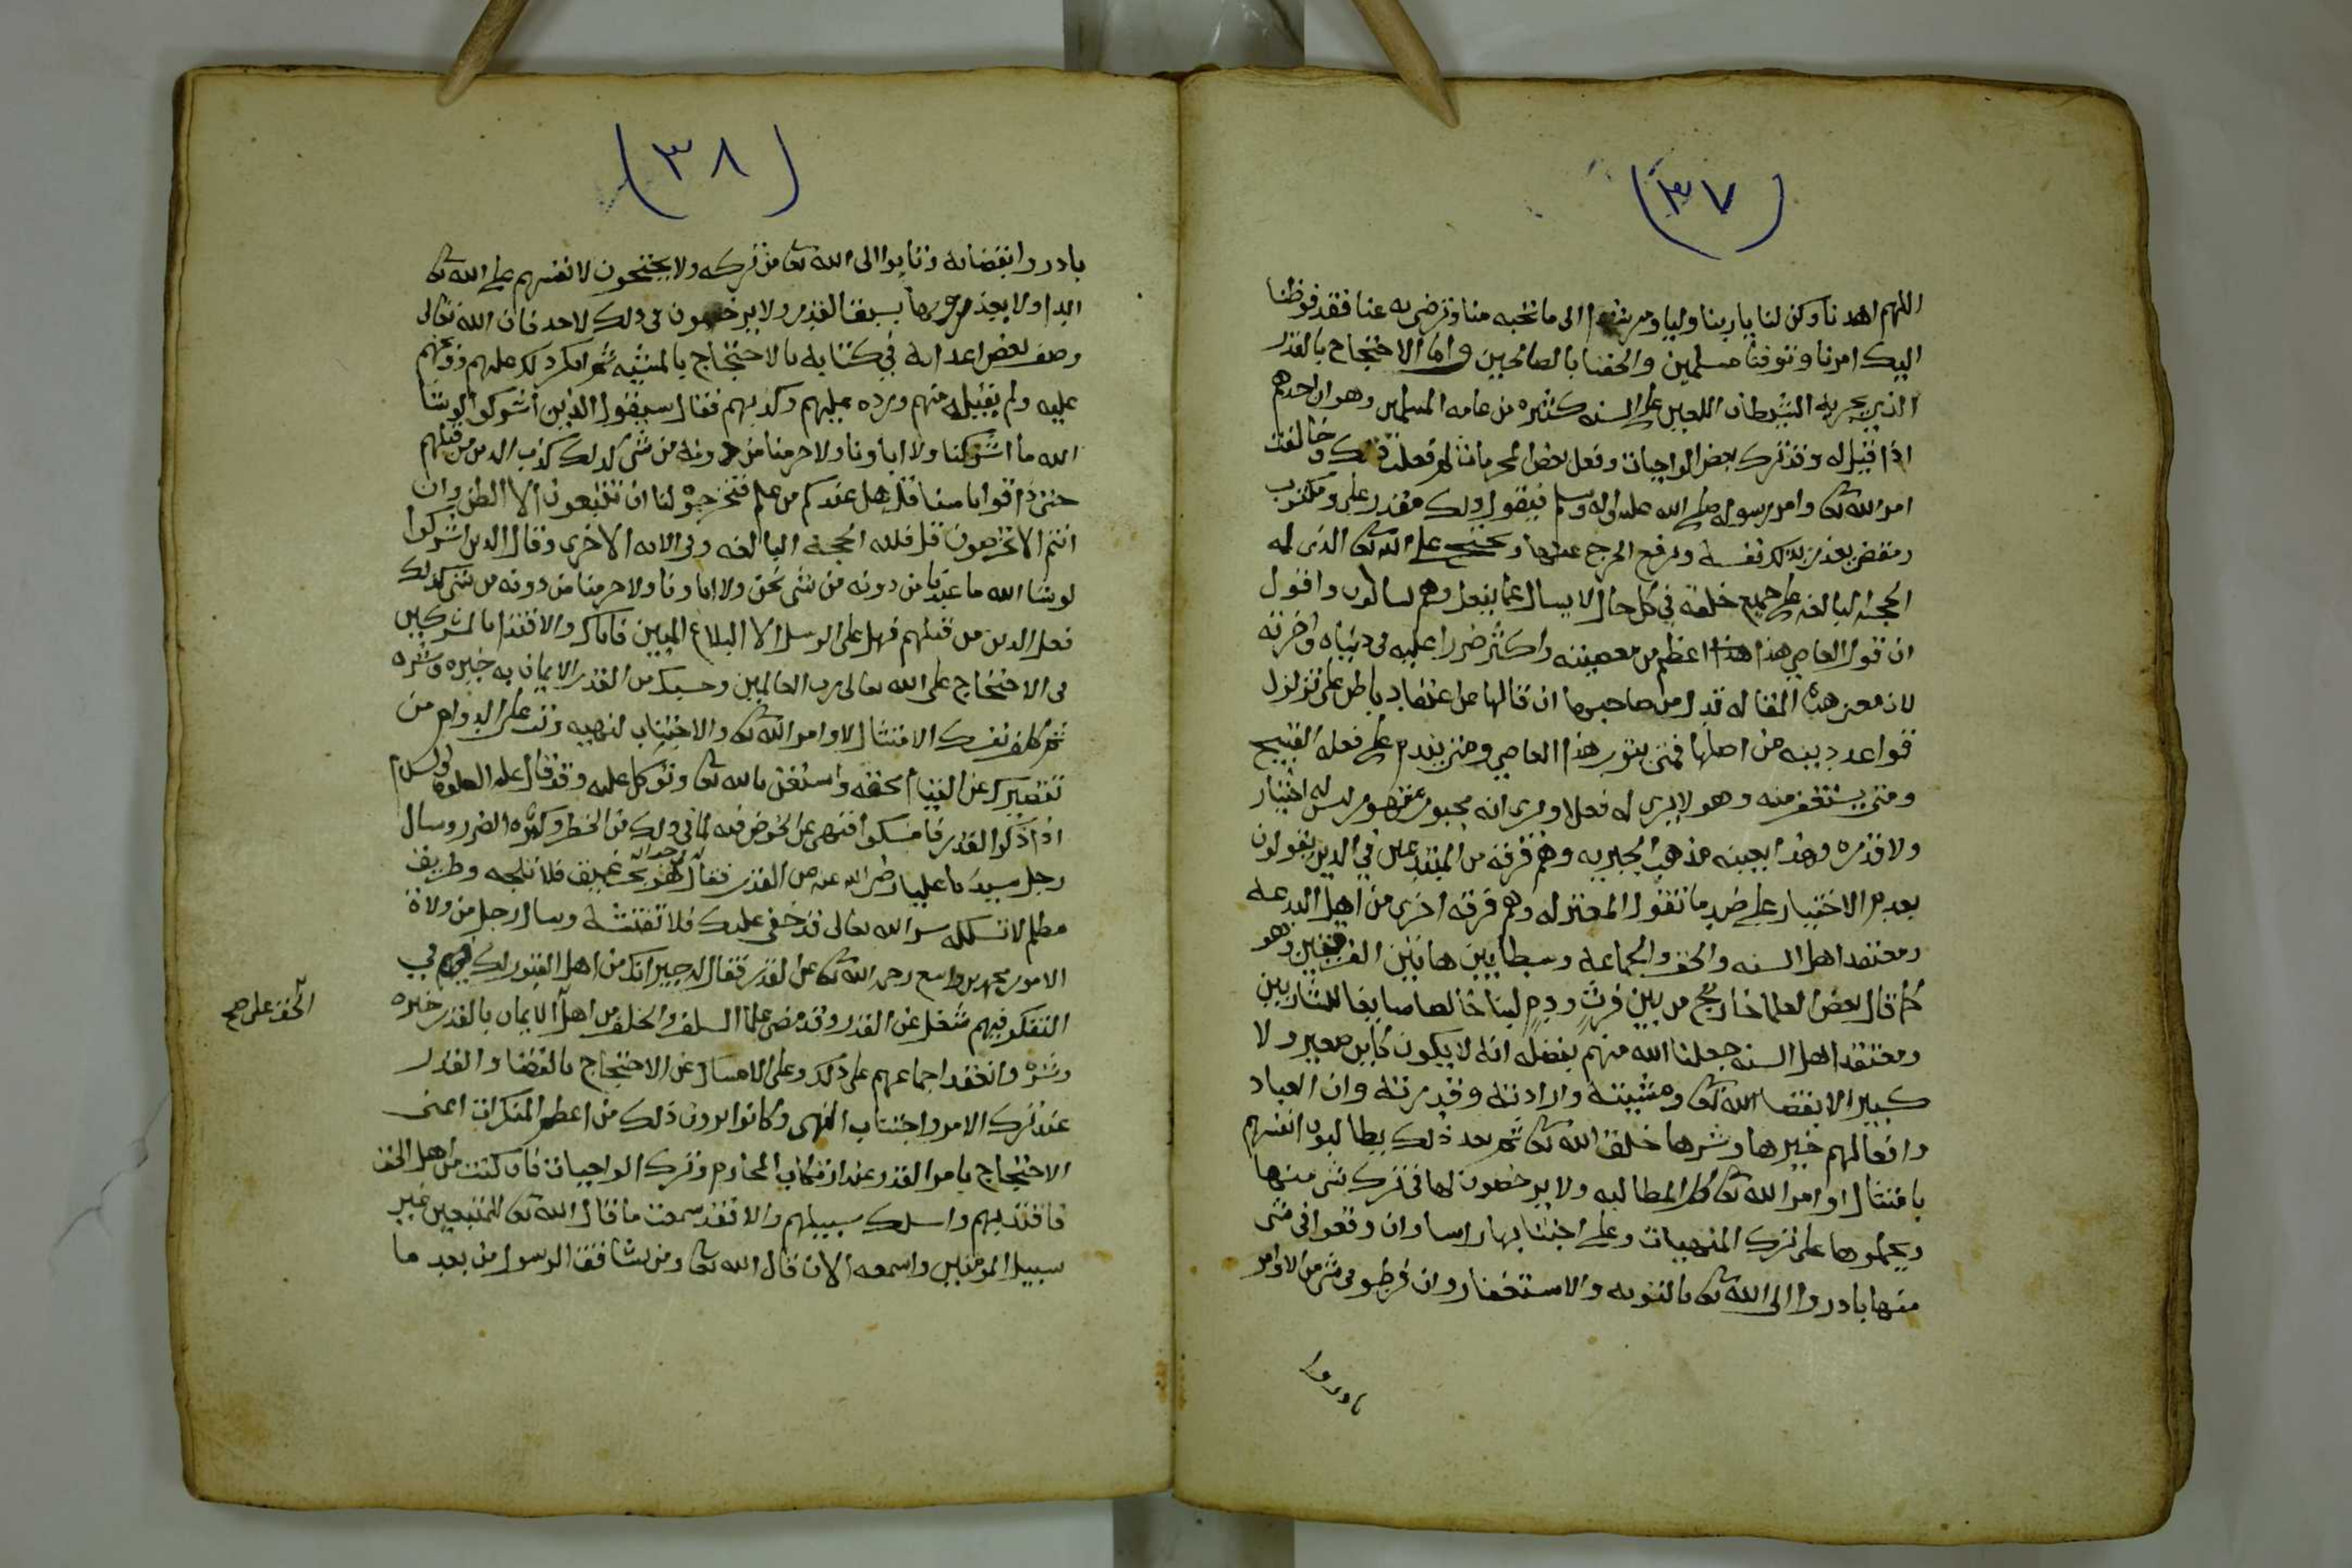 (٣٧)
اللهم اهدنا وكن لنا يا ربنا وليا ومرشدا الى ما تحبه منا وترضى به عنا فقد فوضنا
اليك امرنا وتوفنا مسلمين والحقنا بالصالحين واما الاحتجاج بالقدر
الذي يجريه الشيطان اللعين على السنه كثيره من عامه المسلمين وهو ان احدهم
اذا قيل له وقد ترك بعض الواجبات وفعل بعض المحرمات لم فعلت ذلك وخالفت
امر الله تعا وامر رسوله صلى الله عليه واله وسلم فيقول ذلك مقدر علي ومكتوب
ومقضي يعذر بذلك نفسه ويرفع الحرج عنها ويحتج على الله تعا الذي له
الحجه البالغه على جميع خلقه في كل حال لا يسال عما يفعل وهم يسالون واقول
ان قول العاصي هذا هذا اعظم من معصيته واكثر ضررا عليه في دنياه واخرته
لان معنى هذه المقاله تدل من صاحبها ان قالها عن اعتقاد باطن على تزلزل
قواعد دينه من اصلها فمتى يتوب هذا العاصي ومتى يندم على فعله القبيح
ومتى يستغفر منه وهو لا يرى له فعلا ويرى انه مجبور مقهور ليس له اختيار
ولا قدره وهذا بعينه مذهب الجبريه وهم فرقه من المبتدعين في الدين يقولون
بعدم الاختيار على ضد ما تقول المعتزله وهم فرقه اخرى من اهل البدعه
ومعتقد اهل السنه والحق والجماعه وسطا بين هاتين الفرقتين وهو
كما قال بعض العلما خارج من بين فرث ودم لبنا خالصا سايغا للشاربين
ومعتقد اهل السنه جعلنا الله منهم بفضله انه لا يكون كاين صغير ولا
كبير الا بقضا الله تعا ومشيته وارادته وقدرته وان العباد
وافعالهم خيرها وشرها خلق الله تعا ثم بعد ذلك يطالبون انفسهم
بامتثال اوامر الله تعا كل المطالبه ولا يرخصون لها في ترك شي منها
ويحملوها على ترك المنهيات وعلى اجتنابها راسا وان وقعوا في شي
منها بادروا الى الله تعا بالتوبه والاستغفار وان فرطوا في شي من الاوامر
بادروا
(٣٨)
بادروا بقضائه وتابوا الى الله تعا من تركه ولا يحتجون لانفسهم على الله تعا
ابدا ولا يعذرونها بسبق القدر ولا يرخصون في ذلك لاحد فان الله تعالى
وصف بعض اعدائه في كتابه بالاحتجاج بالمشيه ثم انكر ذلك عليهم
عليه ولم يقبله منهم ورده عليهم وكذبهم فقال سيقول الذين اشركوا لو شا
الله ما اشركنا ولا اباونا ولا حرمنا من دونه من شي كذلك كذب الذين من قبلهم
حتى ذاقوا باسنا قل هل عندكم من علم فتخرجوه لنا ان تتبعون الا الظن وان
انتم الا تخرصون قل فلله الحجه البالغه وفي الايه الاخرى وقال الذين اشركوا
لو شا الله ما عبدنا من دونه من شي نحن ولا اباونا ولا حرمنا من دونه من شي كذلك
فعل الذين من قبلهم فهل على الرسل الا البلاغ المبين فاياك والاقتدا بالمشركين
في الاحتجاج على الله تعالى رب العالمين وحسبك من القدر الايمان به خيره وشره
ثم كلف نفسك الامتثال لاوامر الله تعا والاجتناب لنهيه وتب على الدوام من
تقصيرك عن القيام بحقه واستعن بالله تعا وتوكل عليه وقد قال عليه الصلوه والسلام
اذا ذكر القدر فامسكوا فنهى عن الخوض فيه لما في ذلك من الخطر وكثره الضرر وسال
رجل سيدنا عليا رضي الله عنه عن القدر فقال هو بحر عميق فلا تلجه وطريق
مظلم لا تسلكه سر الله تعالى قد خفي عليك فلا تفتشه وسال رجل من ولاة
الامور محمد بن واسع رحمه الله تعا عن القدر فقال له جيرانك من اهل القبور لك في
التفكر فيهم شغل عن القدر وقد مضى علما السلف والخلف من اهل الايمان بالقدر خيره
وشره وانعقد اجماعهم على ذلك وعلى الامساك عن الاحتجاج بالقضا والقدر
عند ترك الامر واجتناب النهى وكانوا يرون ذلك من اعظم المنكرات اعنى
الاحتجاج بامر القدر عند ارتكاب المحارم وترك الواجبات فان كنت من اهل الحق
فاقتد بهم واسلك سبيلهم والا فقد سمعت ما قال الله تعا للمتبعين غير
سبيل المومنين واسمعه الان قال الله تعا ومن يشاقق الرسول من بعد ما